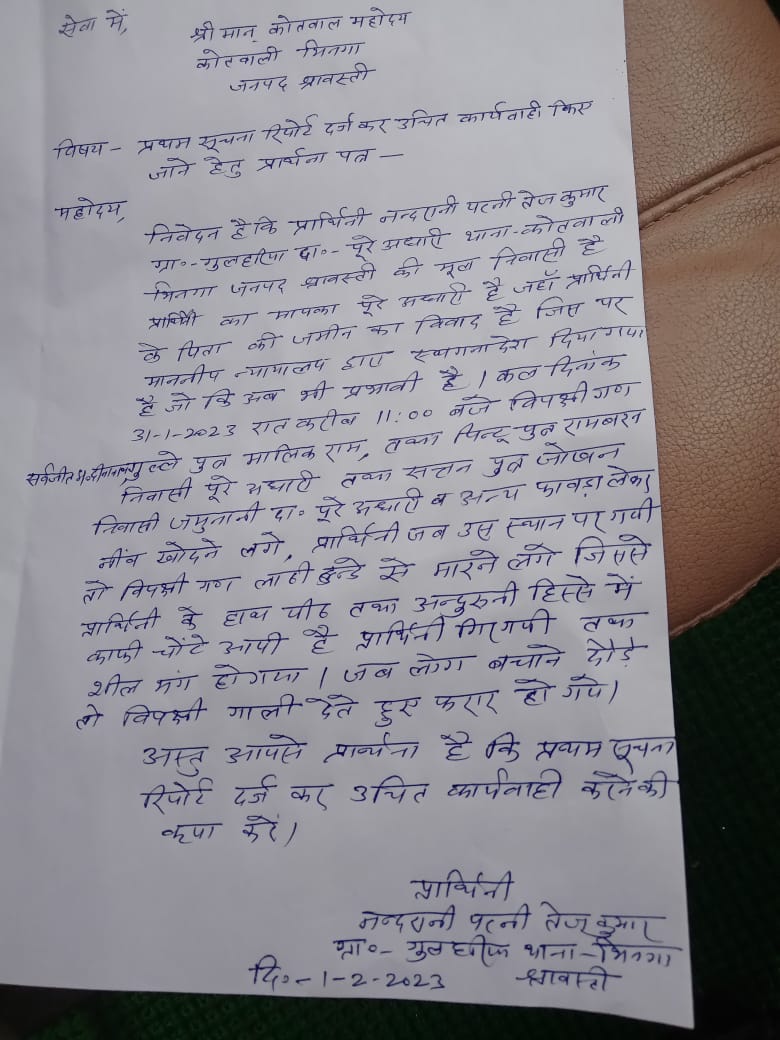 सेवा में,
श्रीमान् कोतवाल महोदय
कोतवाली भिनगा
जनपद श्रावस्ती
विषय - प्रथम सूचना रिपोर्ट दर्ज कर उचित कार्यवाही किए
जाने हेतु प्रार्थना पत्र —
महोदय,
निवेदन है कि प्रार्थिनी नन्दरानी पत्नी तेज कुमार
ग्रा०-गुलहरिया दा०- पूरे अधारी थाना-कोतवाली
भिनगा जनपद श्रावस्ती की मूल निवासी है
प्रार्थिनी का मायका पूरे अधारी है जहाँ प्रार्थिनी
के पिता की जमीन का विवाद है जिस पर
माननीय न्यायालय द्वारा स्थगनादेश दिया गया
है जो कि अब भी प्रभावी है। कल दिनांक
31-1-2023 रात करीब 11:00 बजे विपक्षी गण
सर्वजीत गुल्ले पुत्र मालिक राम, तथा पिन्टू पुत्र रामबरन
निवासी पूरे अधारी तथा सत्तन पुत्र जोखन
निवासी जमुनानी दा० पूरे अधारी व अन्य फावड़ा लेकर
नींव खोदने लगे, प्रार्थिनी जब उस स्थान पर गयी
तो विपक्षी गण लाठी डन्डे से मारने लगे जिससे
प्रार्थिनी के हाथ पीठ तथा अन्दुरुनी हिस्से में
काफी चोंटे आयी है प्रार्थिनी गिर गयी तथा
शील भंग हो गया। जब लोग बचाने दौड़े
तो विपक्षी गाली देते हुए फरार हो गये।
अस्तु आपसे प्रार्थना है कि प्रथम सूचना
रिपोर्ट दर्ज कर उचित कार्यवाही करने की
कृपा करें।
प्रार्थिनी
नन्दरानी पत्नी तेज कुमार
ग्रा०- गुलहरिया थाना-भिनगा
दि०-1-2-2023 श्रावस्ती